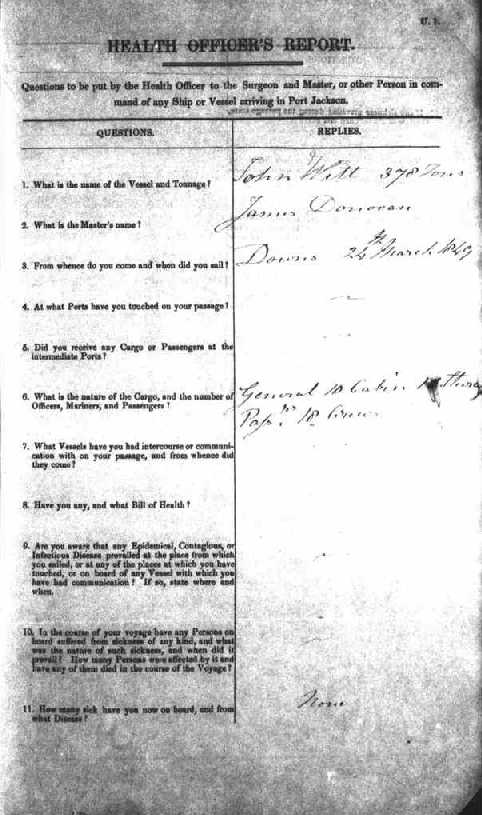 HEALTH OFFICER'S REPORT.
Questions to be put by the Health Officer to the Surgeon and Master, or other Person in com-
mand of any Ship or Vessel arriving in Port Jackson.
QUESTIONS.
REPLIES.
1. What is the name of the Vessel and Tonnage?
John Witt 378 Tons
2. What is the Master's name?
James Donovan
3. From whence do you come and when did you sail?
Downs 24th March 1849
4. At what Ports have you touched on your passage?
5. Did you receive any Cargo or Passengers at the
intermediate Ports?
6. What is the nature of the Cargo, and the number of
Officers, Mariners, and Passengers?
General 18 Cabin
18
7. What Vessels have you had intercourse or communi-
cation with on your passage, and from whence did
they come?
8. Have you any, and what Bill of Health?
9. Are you aware that any Epidemical, Contagious, or
Infectious Disease prevailed at the place from which
you sailed, or at any of the places at which you have
touched, or on board of any Vessel with which you
have had communication? If so, state where and
when.
10. In the course of your voyage have any Persons on
board suffered from sickness of any kind, and what
was the nature of such sickness, and when did it
prevail? How many Persons were affected by it and
have any of them died in the course of the Voyage?
11. How many sick have you now on board, and from
what Disease?
None